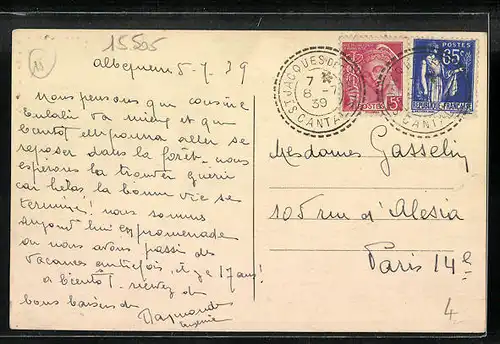 15505
5-7 39
nous pensons que cousine
Eulalie va mieux et que
bientôt elle pourra aller se
reposer dans la forêt. nous
espérons la trouver guérie
car hélas la bonne vie se
termine! nous sommes
aujourd'hui en promenade
où nous avons passé des
vacances autrefois, il y a 17 ans!
à bientôt. recevez de
bons baisers de
Raymonde
ST JACQUES DE
7
8 -7
39
CANTAL
POSTES 5c
POSTES
65c
REPUBLIQUE FRANÇAISE
CANTAL
Mesdames Gasselin
105 rue d'Alesia
Paris 14e
4